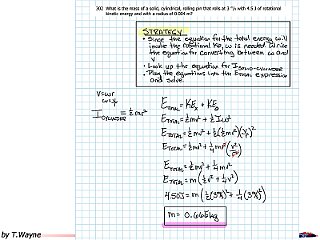 30) What is the mass of a solid, cylindrical, rolling pin that rolls at 3 m/s with 4.5 J of rotational
kinetic energy and with a radius of 0.004 m?
STRATEGY
• Since the equation for the total energy will
include the rotational KE, ω is needed. Write
the equation for converting between ω and
v.
• Look up the equation for I SOLID-CYLINDER
• Plug the equations into the ETOTAL expression
and solve.
V=ωr
ω=v/r
I CYLINDER = ½mr²
ETOTAL = KET + KER
ETOTAL = ½mv² + ½Iω²
ETOTAL = ½mv² + ½(½mr²)(v/r)²
ETOTAL = ½mv² + ¼mr²(v²/r²)
ETOTAL = ½mv² + ¼mv²
ETOTAL = m(½v² + ¼v²)
4.50J = m(½(3m/s)² + ¼(3m/s)²)
m = 0.665kg
by T.Wayne